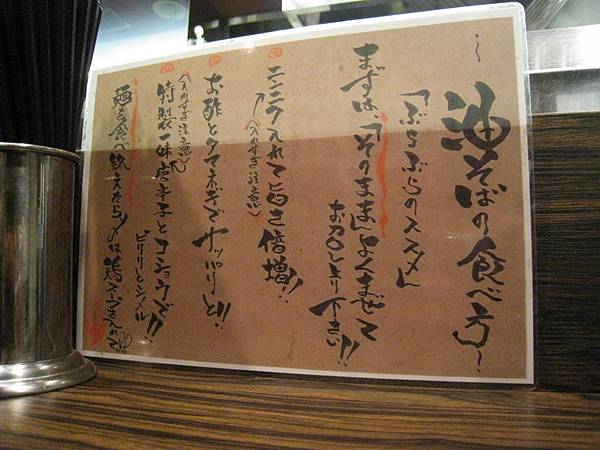 〜油そばの食べ方〜
「ぶらぶらのススメ」
まずは、「そのまま」よくまぜて
お召し上り下さい!!
ニンニク入れて旨さ倍増!!
(入れすぎ注意)
お酢とタマネギでサッパリと!!
(入れすぎ注意)
特製一味唐辛子とコショウで
ピリリとシメル!!
麺を食べ終えたら〆は鶏スープを入れて!!